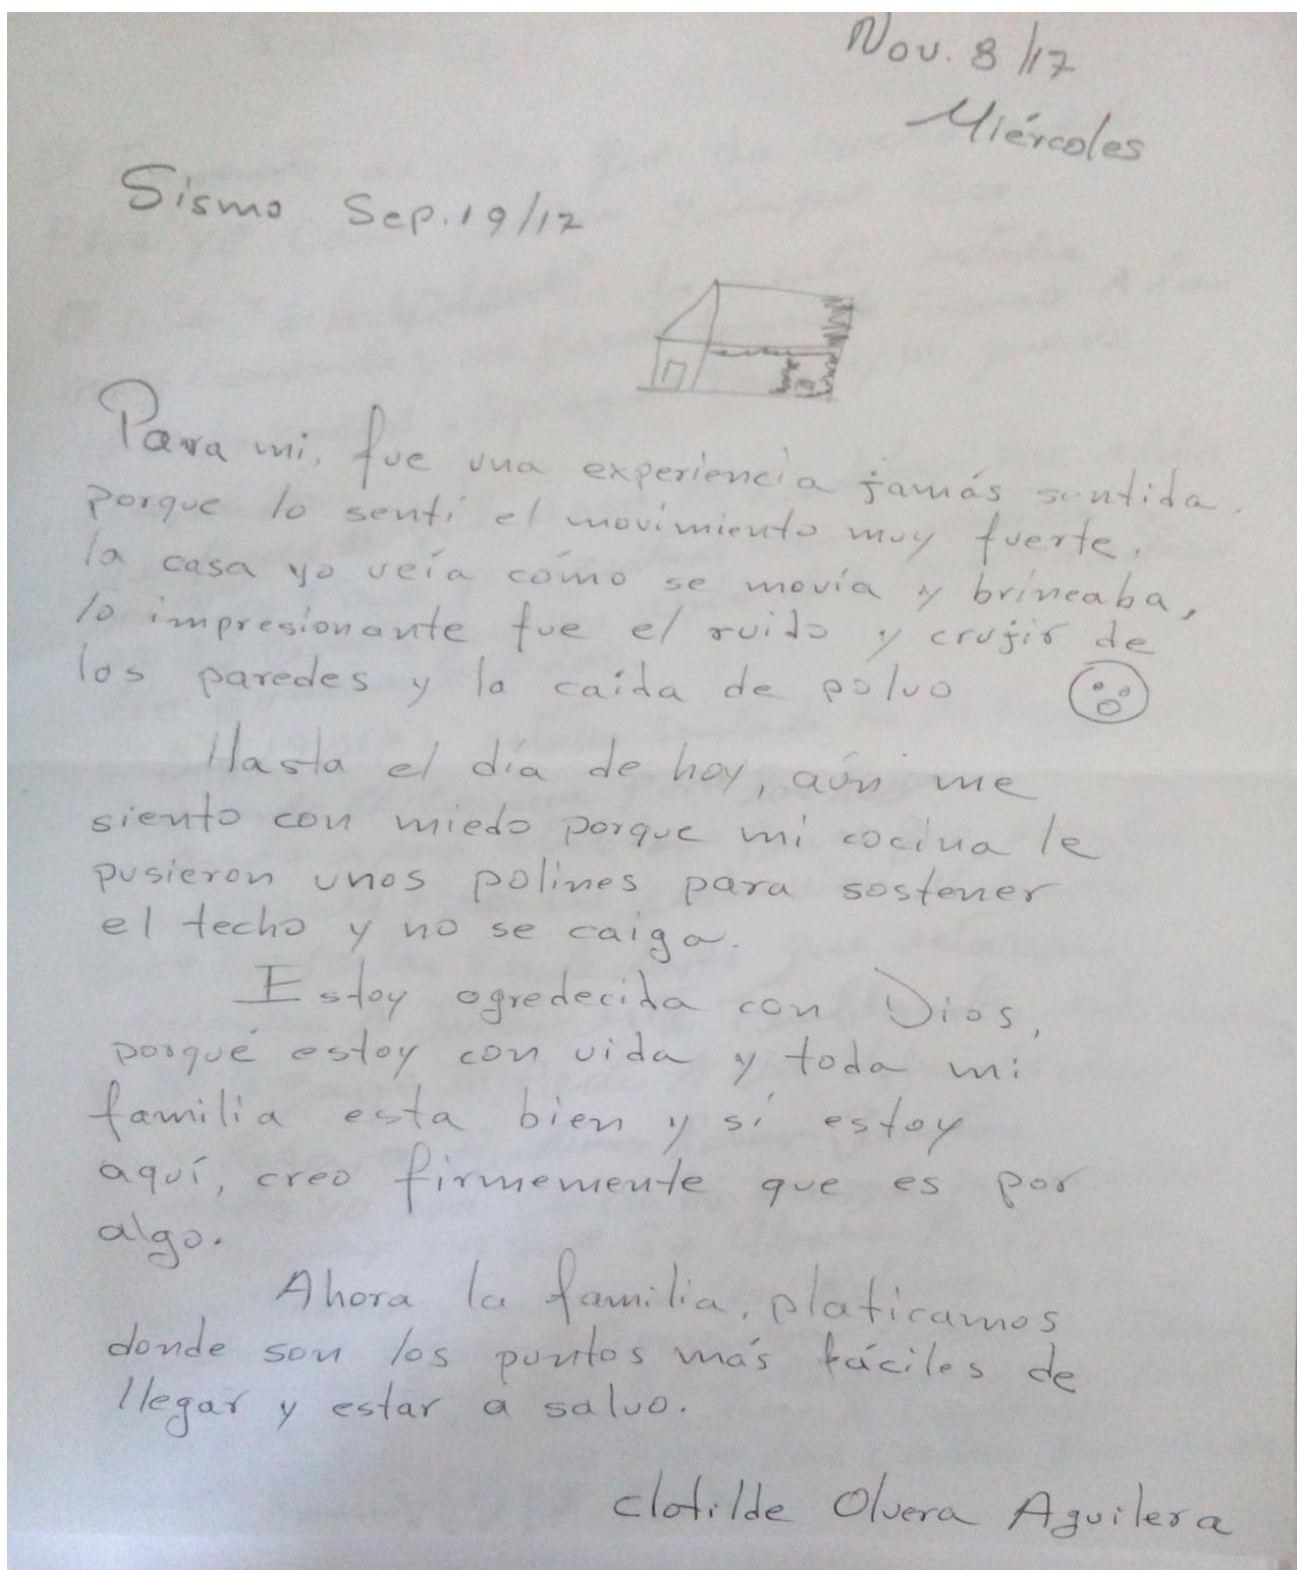 Nov. 8/17
Miércoles
Sismo Sep. 19/17
Para mi, fue una experiencia jamás sentida,
porque lo sentí el movimiento muy fuerte,
la casa yo veía cómo se movía y brincaba,
lo impresionante fue el ruido y crujir de
las paredes y la caída de polvo
Hasta el día de hoy, aún me
siento con miedo porque mi cocina le
pusieron unos polines para sostener
el techo y no se caiga.
Estoy agredecida con Dios,
porqué estoy con vida y toda mi
familia esta bien y sí estoy
aquí, creo firmemente que es por
algo.
Ahora la familia, platicamos
donde son los puntos más fáciles de
llegar y estar a salvo.
Clotilde Olvera Aguilera